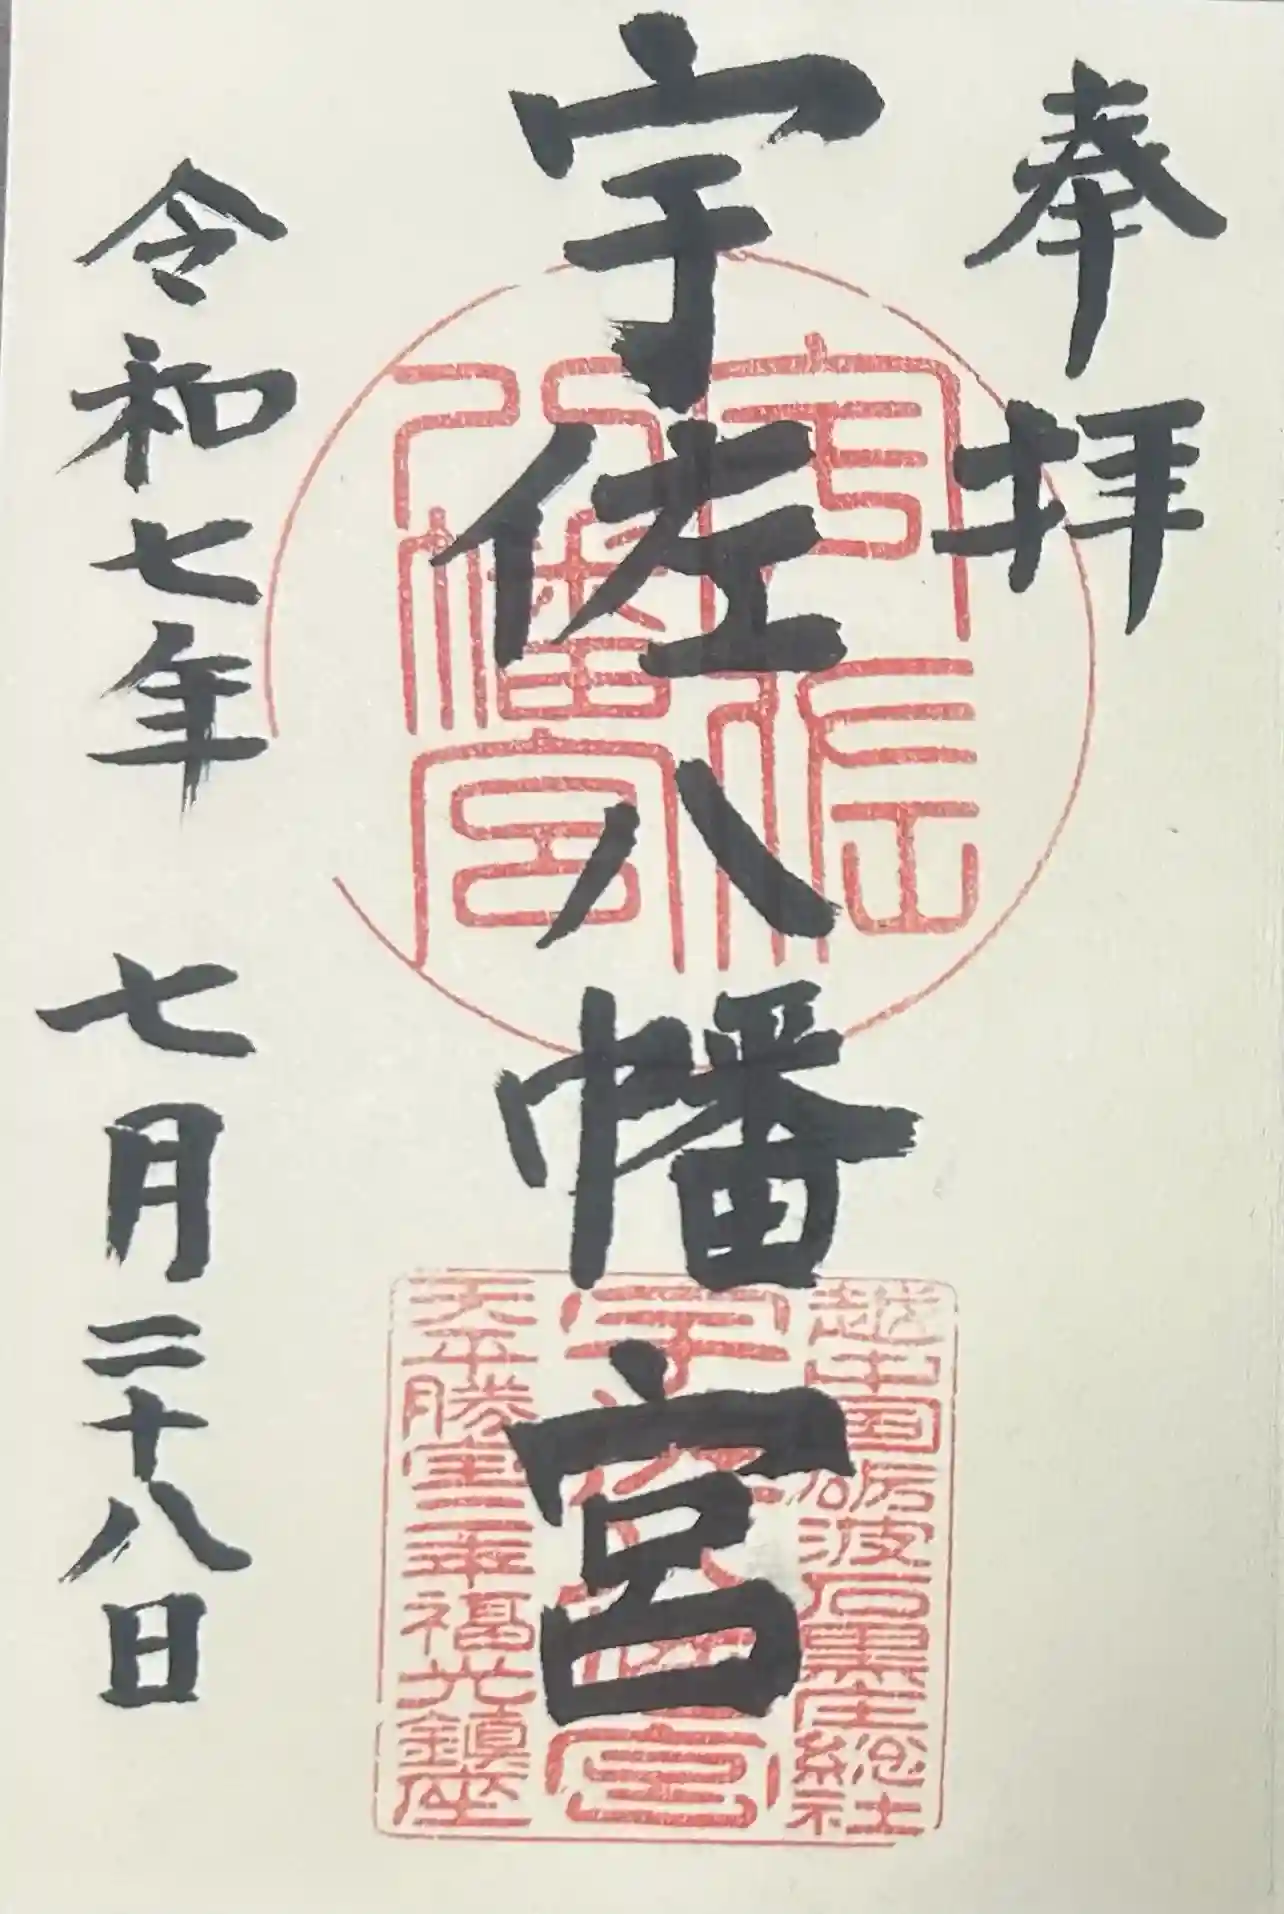 奉拝
宇佐八幡宮
令和七年 七月二十八日
宇佐八幡宮
越中国砺波石黒庄総社
宇佐八幡宮
天平勝宝二年福光鎮座